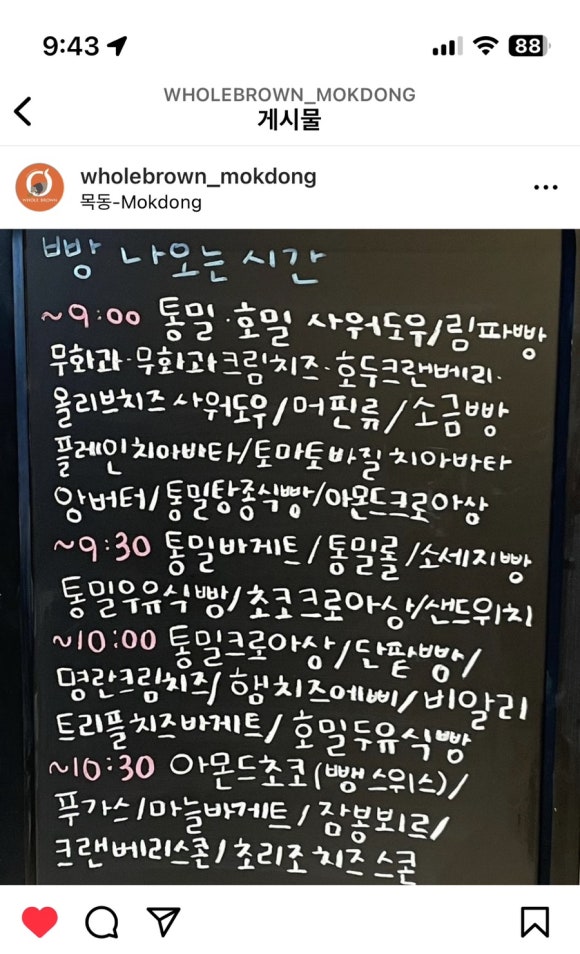 9:43
88
WHOLEBROWN_MOKDONG
게시물
wholebrown_mokdong
목동-Mokdong
WHOLE BROWN
빵 나오는 시간
~9:00 통밀·호밀 사워도우/림파빵
무화과·무화과크림치즈·호두크랜베리·
올리브치즈 사워도우/머핀류/소금빵
플레인치아바타/토마토바질치아바타
앙버터/통밀탕종식빵/아몬드크로아상
~9:30 통밀바게트/통밀롤/소세지빵
통밀우유식빵/초코크로아상/샌드위치
~10:00 통밀크로아상/단팥빵/
명란크림치즈/햄치즈에삐/비알리
트리플치즈바게트/호밀두유식빵
~10:30 아몬드초코(뺑스위스)/
푸가스/마늘바게트/잠봉뵈르/
크랜베리스콘/초리조치즈스콘